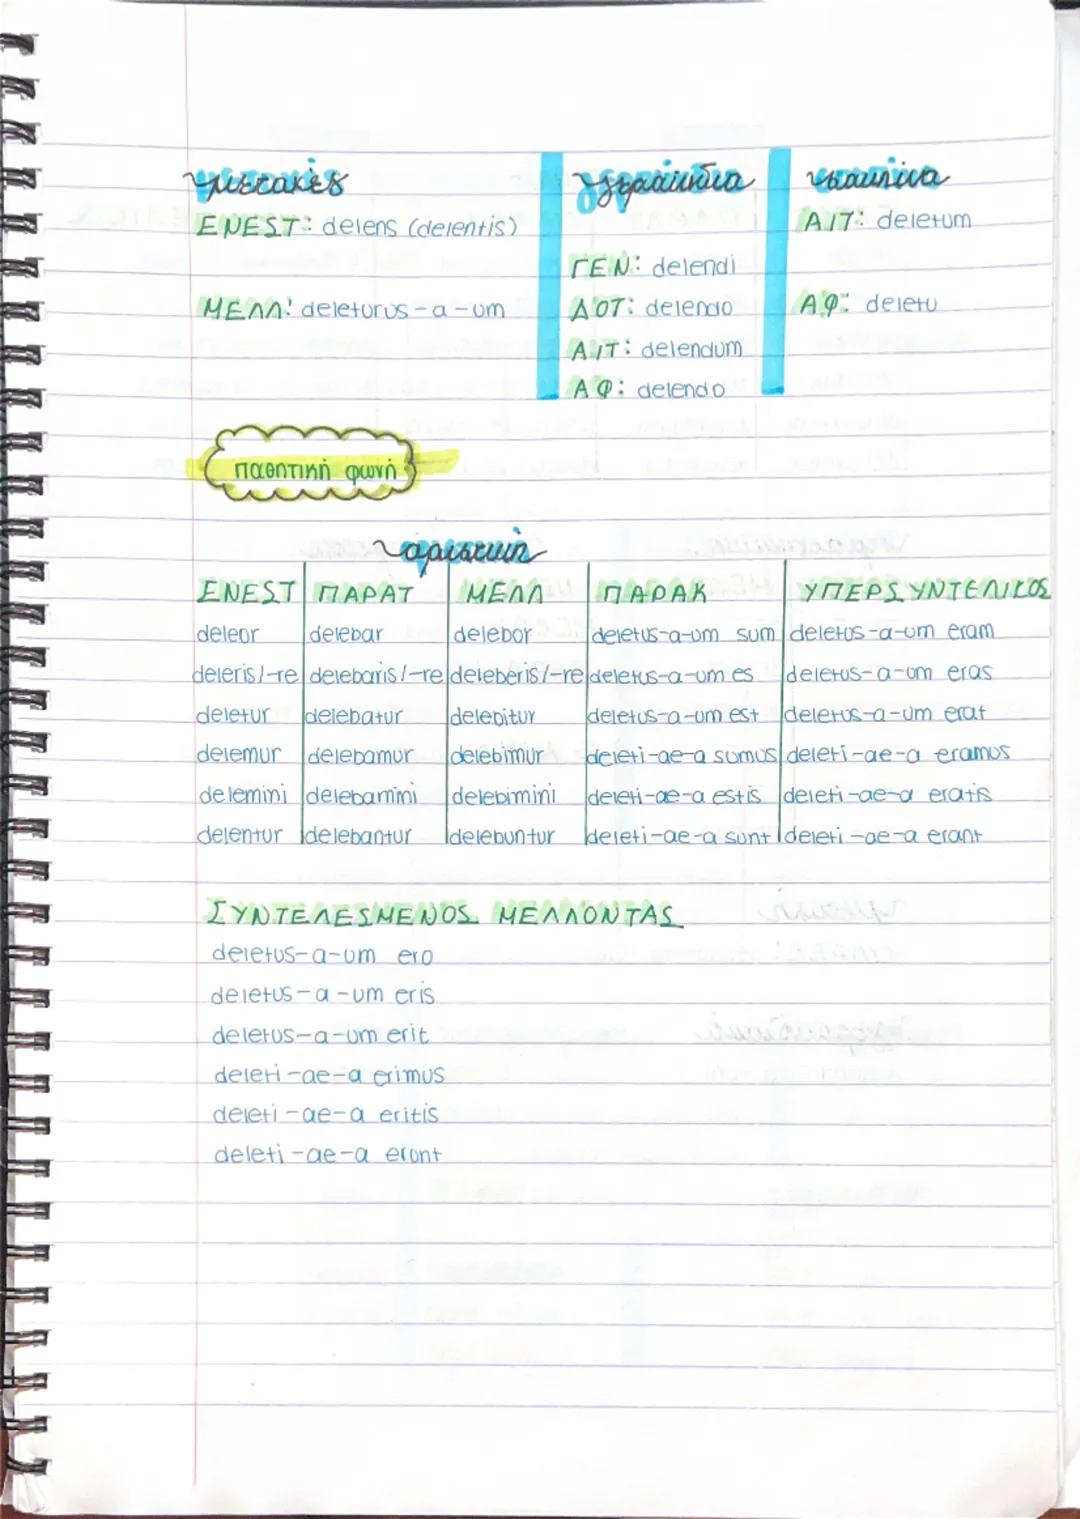 μετοχές γερούνδιο σουπίνο
ΕΝΕΣΤ: delens (delentis) ΑΙΤ: deletum
ΓΕΝ: delendi
ΜΕΛΛ: deleturus-a-um ΔΟΤ: delendo ΑΦ: deletu
ΑΙΤ: delendum
ΑΦ: delendo
παθητική φωνή
οριστική
ΕΝΕΣΤ ΠΑΡΑΤ ΜΕΛΛ ΠΑΡΑΚ ΥΠΕΡΣΥΝΤΕΛΙΚΟΣ
deleor delebar delebor deletus-a-um sum deletus-a-um eram
deleris/-re delebaris/-re deleberis/-re deletus-a-um es deletus-a-um eras
deletur delebatur delebitur deletus-a-um est deletus-a-um erat
delemur delebamur delebimur deleti-ae-a sumus deleti-ae-a eramus
delemini delebamini delebimini deleti-ae-a estis deleti-ae-a eratis
delentur delebantur delebuntur deleti-ae-a sunt deleti-ae-a erant
ΣΥΝΤΕΛΕΣΜΕΝΟΣ ΜΕΛΛΟΝΤΑΣ
deletus-a-um ero
deletus-a-um eris
deletus-a-um erit
deleti-ae-a erimus
deleti-ae-a eritis
deleti-ae-a erunt